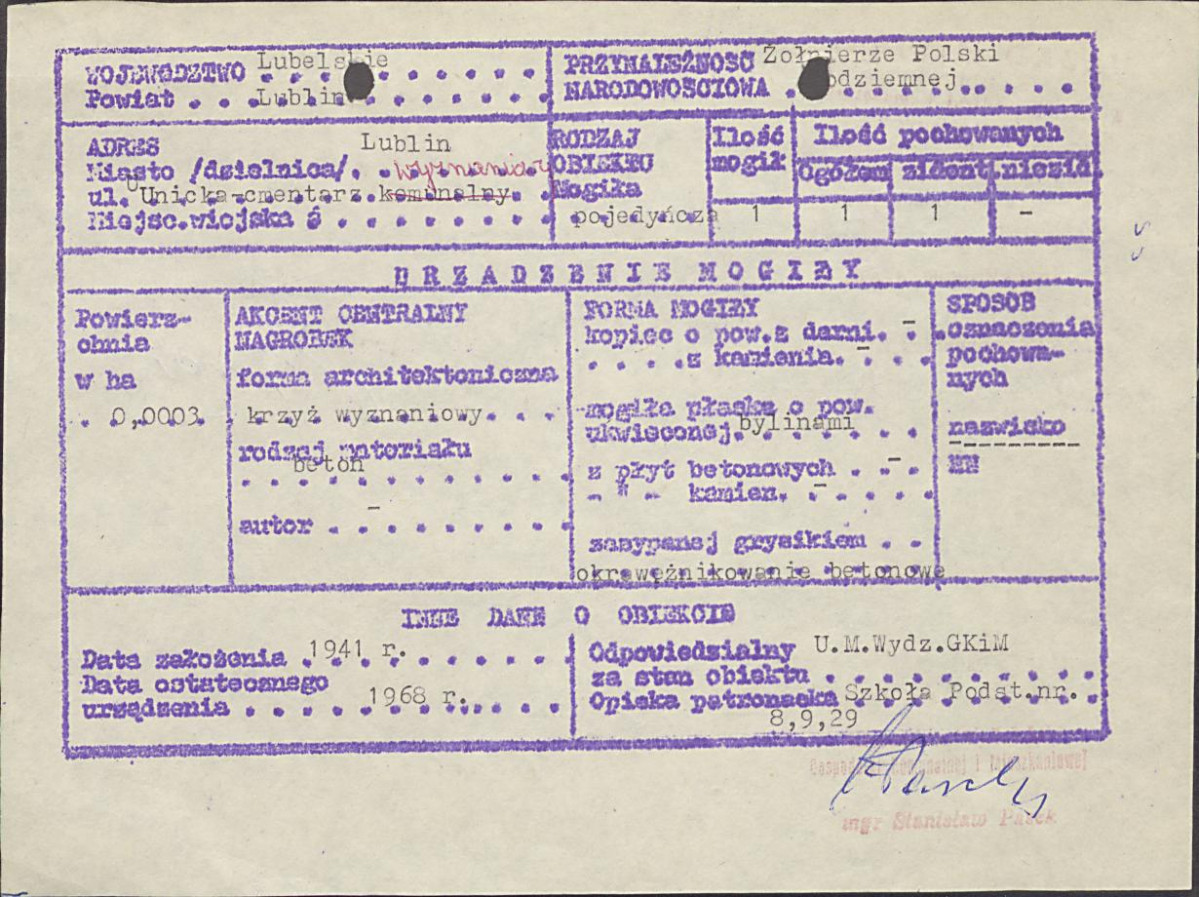 WOJEWÓDZTWO Lubelskie
Powiat . . Lublin
PRZYNALEŻNOŚĆ Żołnierze Polski
NARODOWOŚCIOWA . odziemnej
ADRES Lublin
Miasto /dzielnica/. . wyznaniowy
ul. Unicka-cmentarz komunalny
Miejsc.wiejska
RODZAJ
OBIEKTU
Mogiła
pojedyńcza
Ilość
mogił
1
Ilość pochowanych
Ogółem zident. niezid.
1 1 -
URZĄDZENIE MOGIŁY
Powierz-
chnia
w ha
. 0,0003.
AKCENT CENTRALNY
NAGROBEK
forma architektoniczna
krzyż wyznaniowy. . .
rodzaj materiału
beton
autor . . - . . . . . .
FORMA MOGIŁY
kopiec o pow.z darni. - .
. . . .z kamienia. - . .
mogiła płaska o pow.
ukwieconej. bylinami
z płyt betonowych . - .
- " - kamien. - . . . .
zasypanej grysikiem . .
okrawężnikowanie betonowe
SPOSÓB
oznaczenia
pochowa-
nych
nazwisko
---------
NN
INNE DANE O OBIEKCIE
Data założenia . 1941 r. . . . . .
Data ostatecznego
urządzenia . . . . 1968 r. . . . .
Odpowiedzialny U.M.Wydz.GKiM
za stan obiektu . . . . . . . .
Opieka patronacka Szkoła Podst.nr.
8,9,29
i Mieszkaniowej
mgr Stanisław Pasek